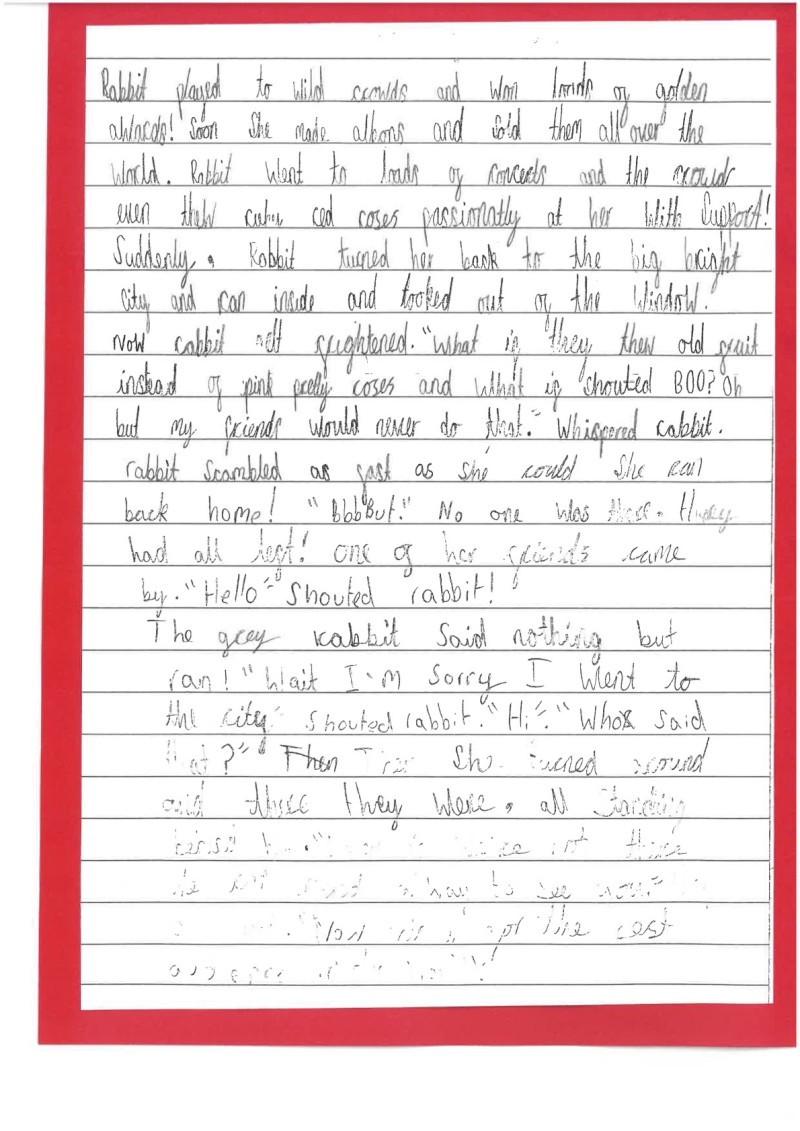 Rabbit played to wild crowds and won loads of golden
awards! Soon She made albons and Sold them all over the
World. Rabbit Went to loads of concerts and the crowds
even thew red roses passionatly at her With Support!
Suddenly, Rabbit turned her back to the big bright
city and ran inside and looked out of the Window.
Now rabbit felt frightened. "What if they thew old fruit
instead of pink pretty roses and What if shouted BOO? Oh
but my friends would never do that." Whispered rabbit.
rabbit Scambled as fast as she could She ran
back home! "BbbBut." No one was there.
had all left! one of her friends came
by. "Hello" Shouted rabbit!
The grey rabbit Said nothing but
ran! "Wait I'm Sorry I Went to
the city" Shouted rabbit. "Hi". "Who said
that?" Then She turned around
and there they Were, all Standing
there
to see
the rest